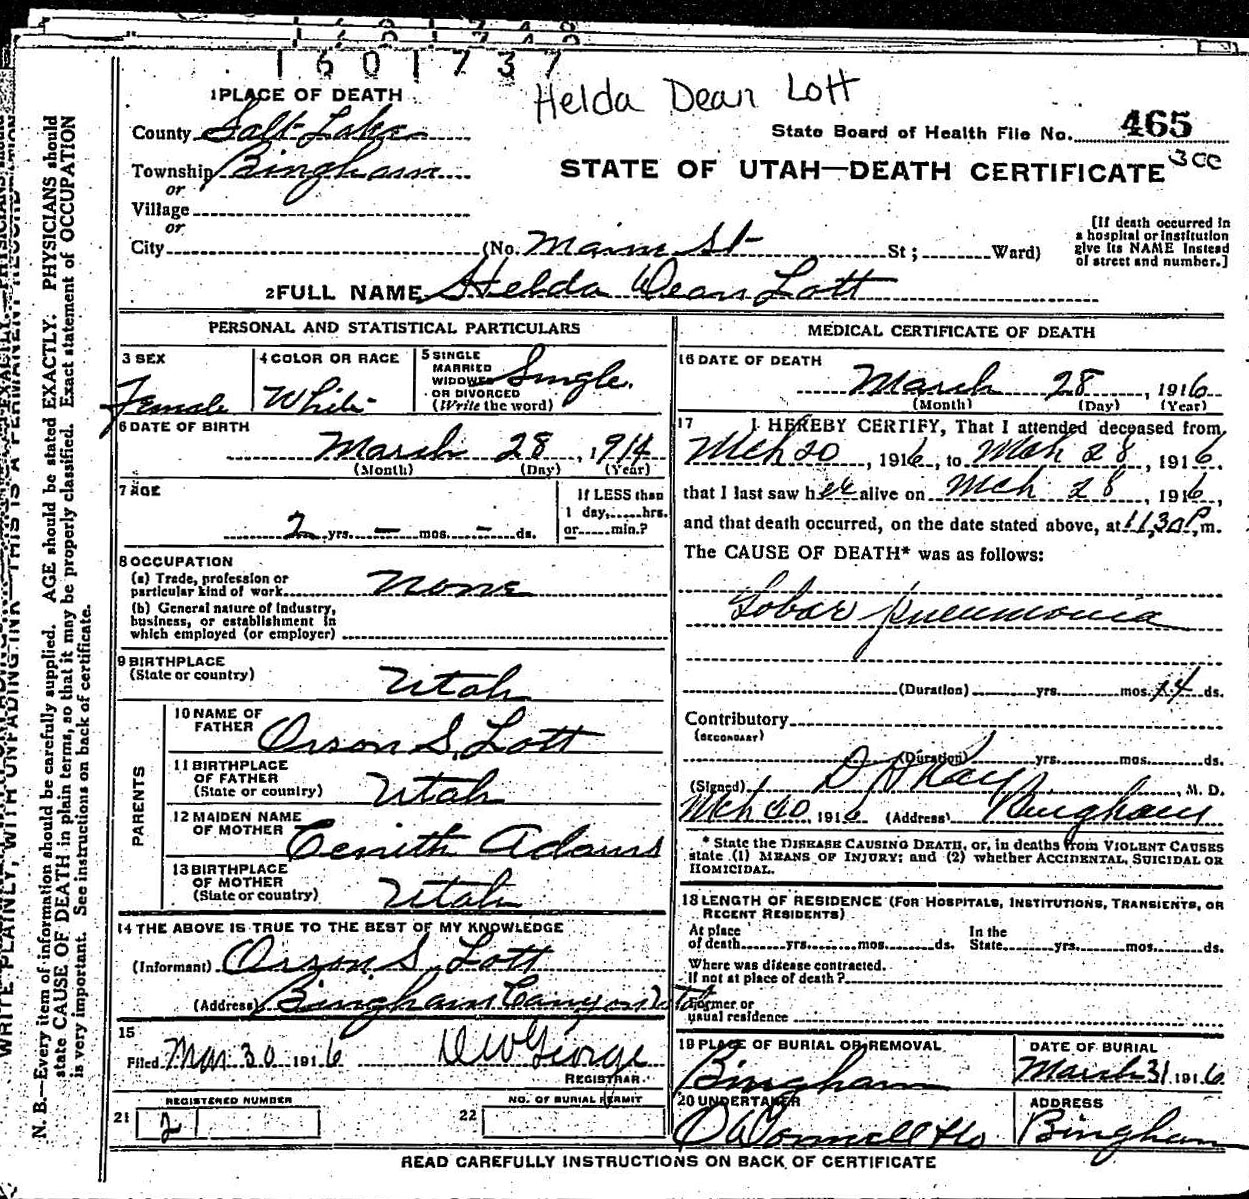 1601737
Helda Dean Lott
1 PLACE OF DEATH
County Salt Lake
State Board of Health File No. 465
3 cc
Township Bingham
STATE OF UTAH—DEATH CERTIFICATE
or
Village
or
City (No. Main St St; Ward)
[If death occurred in
a hospital or institution
give its NAME instead
of street and number.]
2 FULL NAME Helda Dean Lott
PERSONAL AND STATISTICAL PARTICULARS
3 SEX
Female
4 COLOR OR RACE
White
5 SINGLE
MARRIED
WIDOWED
OR DIVORCED
(Write the word)
Single.
6 DATE OF BIRTH
March 28, 1914
(Month) (Day) (Year)
7 AGE
2 yrs. – mos. – ds.
If LESS than
1 day, hrs.
or min.?
8 OCCUPATION
(a) Trade, profession or
particular kind of work none
(b) General nature of industry,
business, or establishment in
which employed (or employer)
9 BIRTHPLACE
(State or country) Utah
PARENTS
10 NAME OF
FATHER Orson S. Lott
11 BIRTHPLACE
OF FATHER
(State or country) Utah
12 MAIDEN NAME
OF MOTHER Cenith Adams
13 BIRTHPLACE
OF MOTHER
(State or country) Utah
14 THE ABOVE IS TRUE TO THE BEST OF MY KNOWLEDGE
(Informant) Orson S. Lott
(Address) Bingham Canyon Utah
15
Filed Mar 30 1916 D W George
REGISTRAR.
21 REGISTERED NUMBER
2
22 NO. OF BURIAL PERMIT
MEDICAL CERTIFICATE OF DEATH
16 DATE OF DEATH
March 28, 1916
(Month) (Day) (Year)
17 I HEREBY CERTIFY, That I attended deceased from
Mch 20, 1916, to Mch 28, 1916.
that I last saw her alive on Mch 28, 1916,
and that death occurred, on the date stated above, at 11,30 P.m.
The CAUSE OF DEATH* was as follows:
Lobar pneumonia
(Duration) yrs. mos. 14 ds.
Contributory
(SECONDARY)
(Duration) yrs. mos. ds.
(Signed) M. D.
Mch 30, 1916 (Address) Bingham
* State the DISEASE CAUSING DEATH, or, in deaths from VIOLENT CAUSES
state (1) MEANS OF INJURY; and (2) whether ACCIDENTAL, SUICIDAL OR
HOMICIDAL.
18 LENGTH OF RESIDENCE (FOR HOSPITALS, INSTITUTIONS, TRANSIENTS, OR
RECENT RESIDENTS)
At place
of death yrs. mos. ds.
In the
State yrs. mos. ds.
Where was disease contracted.
If not at place of death?
Former or
usual residence
19 PLACE OF BURIAL OR REMOVAL
Bingham
DATE OF BURIAL
March 31 1916
20 UNDERTAKER
O'Donnell & Co
ADDRESS
Bingham
READ CAREFULLY INSTRUCTIONS ON BACK OF CERTIFICATE
WRITE PLAINLY, WITH UNFADING INK—THIS IS A PERMANENT RECORD
N. B.—Every item of information should be carefully supplied. AGE should be stated EXACTLY. PHYSICIANS should
state CAUSE OF DEATH in plain terms, so that it may be properly classified. Exact statement of OCCUPATION
is very important. See instructions on back of certificate.